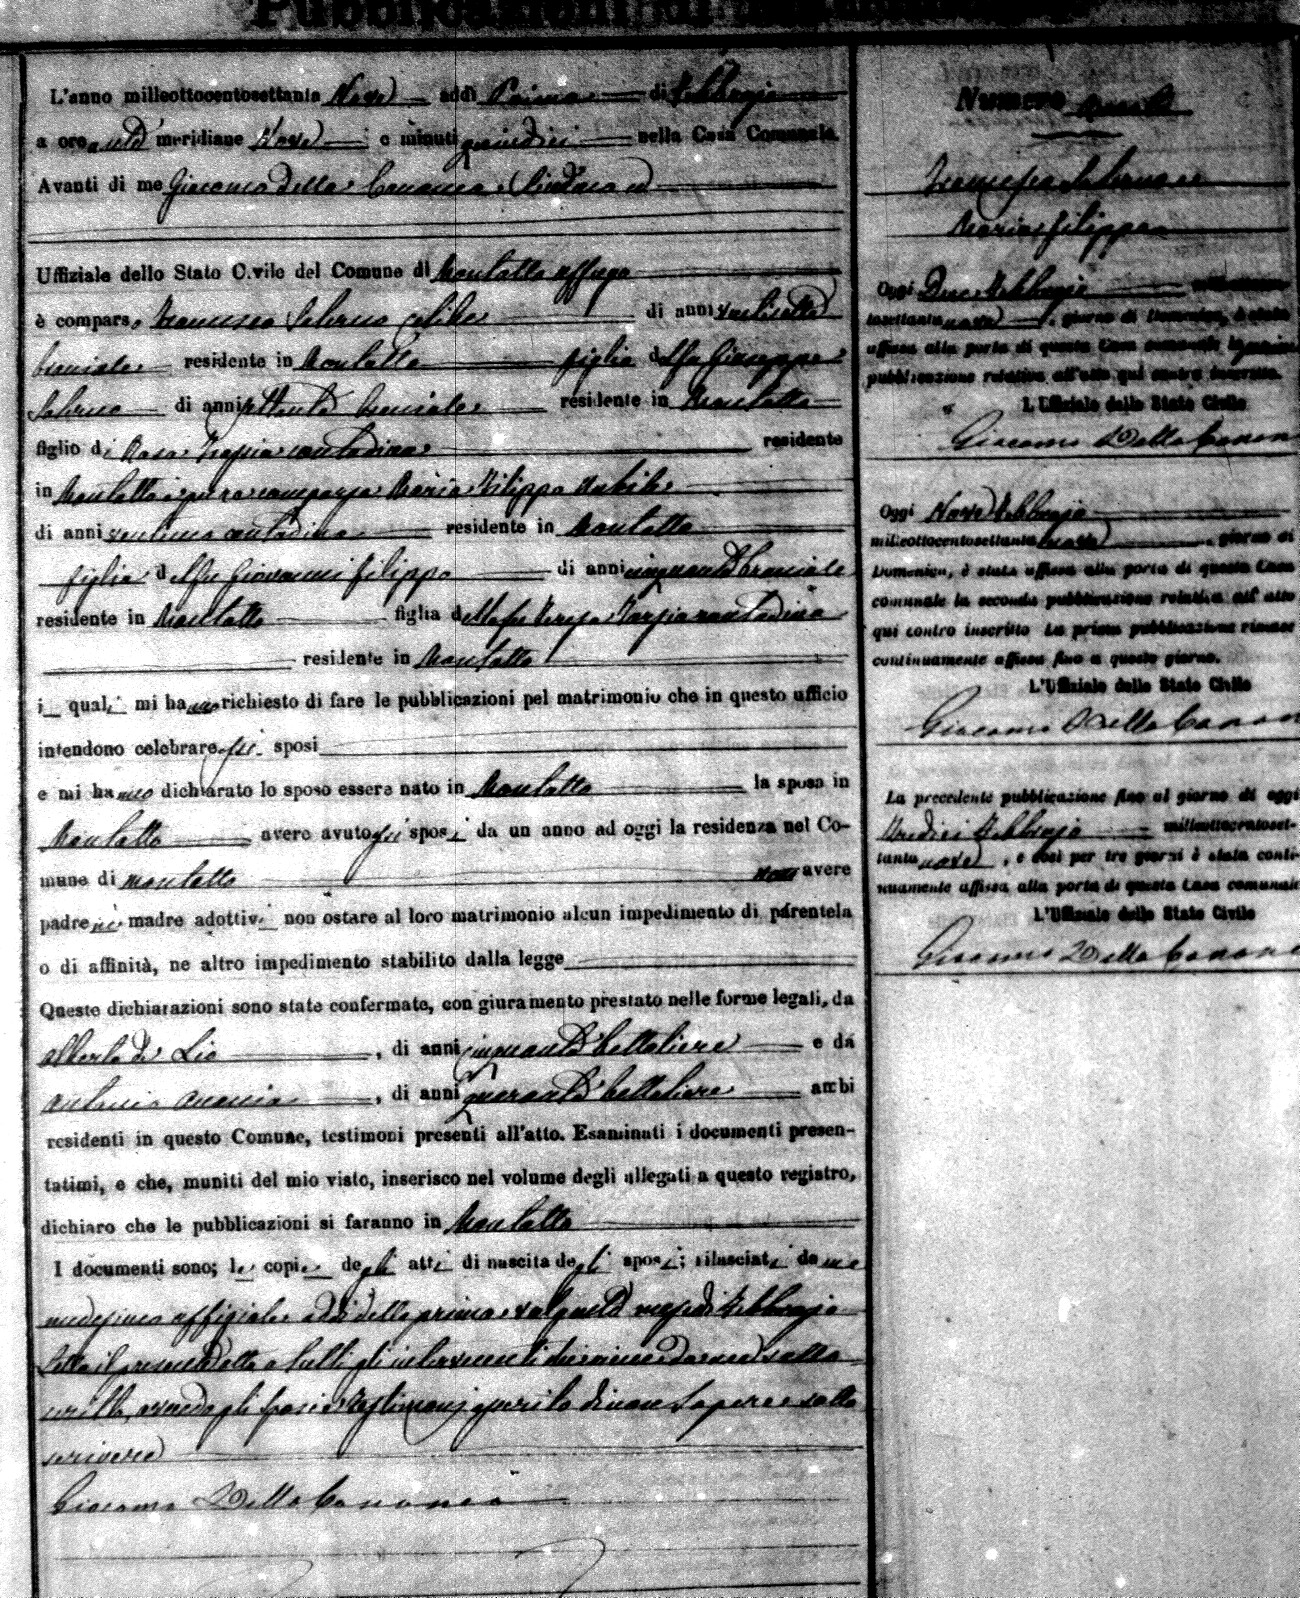 Pubblicazioni di
L'anno milleottocentosettanta Nove addì Primo di Febbrajo
a ore anti meridiane Nove e minuti quindici nella Casa Comunale.
Avanti di me Giacomo Della Cananea Sindaco
Uffiziale dello Stato Civile del Comune di Montalto Uffugo
è compars Francesco Salerno celibe di anni ventisette
bracciale residente in Montalto figlio del fu Giuseppe
Salerno di anni settanta bracciale residente in Montalto
figlio di Rosa contadina residente
in Montalto è pure comparsa Maria Filippo nubile
di anni contadina residente in Montalto
figlia del fu Giovanni Filippo di anni cinquanta bracciale
residente in Montalto figlia della fu Teresa contadina
residente in Montalto
i quali mi hanno richiesto di fare le pubblicazioni pel matrimonio che in questo ufficio
intendono celebrare essi sposi
e mi hanno dichiarato lo sposo essere nato in Montalto la sposa in
Montalto avere avuto gli sposi da un anno ad oggi la residenza nel Co-
mune di Montalto non avere
padre nè madre adottivi non ostare al loro matrimonio alcun impedimento di parentela
o di affinità, ne altro impedimento stabilito dalla legge
Queste dichiarazioni sono state confermate, con giuramento prestato nelle forme legali, da
Alberto de Lio, di anni cinquanta bettoliere e da
Antonio, di anni quaranta bettoliere ambi
residenti in questo Comune, testimoni presenti all'atto. Esaminati i documenti presen-
tatimi, e che, muniti del mio visto, inserisco nel volume degli allegati a questo registro,
dichiaro che le pubblicazioni si faranno in Montalto
I documenti sono; le copie degli atti di nascita degli sposi; rilasciati da me
medesimo uffiziale addì detto primo mese di Febbrajo
Letto il presente atto a tutti gli intervenuti sotto
gli sposi e testimonj per lo di non sapere sotto
scrivere
Giacomo Della Cananea
Numero
Francesco Salerno e
Maria Filippo
Oggi Due Febbrajo milleottocen-
tosettanta nove, giorno di Domenica, è stata
affissa alla porta di questa Casa comunale la prima
pubblicazione relativa all'atto qui contro inscritto.
L'Uffiziale dello Stato Civile
Giacomo Della Canan
Oggi Nove Febbrajo
milleottocentosettanta nove, giorno di
Domenica, è stata affissa alla porta di questa Casa
comunale la seconda pubblicazione relativa all'atto
qui contro inscritto La prima pubblicazione rimase
continuamente affissa fino a questo giorno.
L'Uffiziale dello Stato Civile
Giacomo Della Canan
La precedente pubblicazione fino al giorno di oggi
Tredici Febbrajo milleottocentoset-
tanta nove, e così per tre giorni è stata conti-
nuamente affissa alla porta di questa Casa comunale
L'Uffiziale dello Stato Civile
Giacomo Della Canane